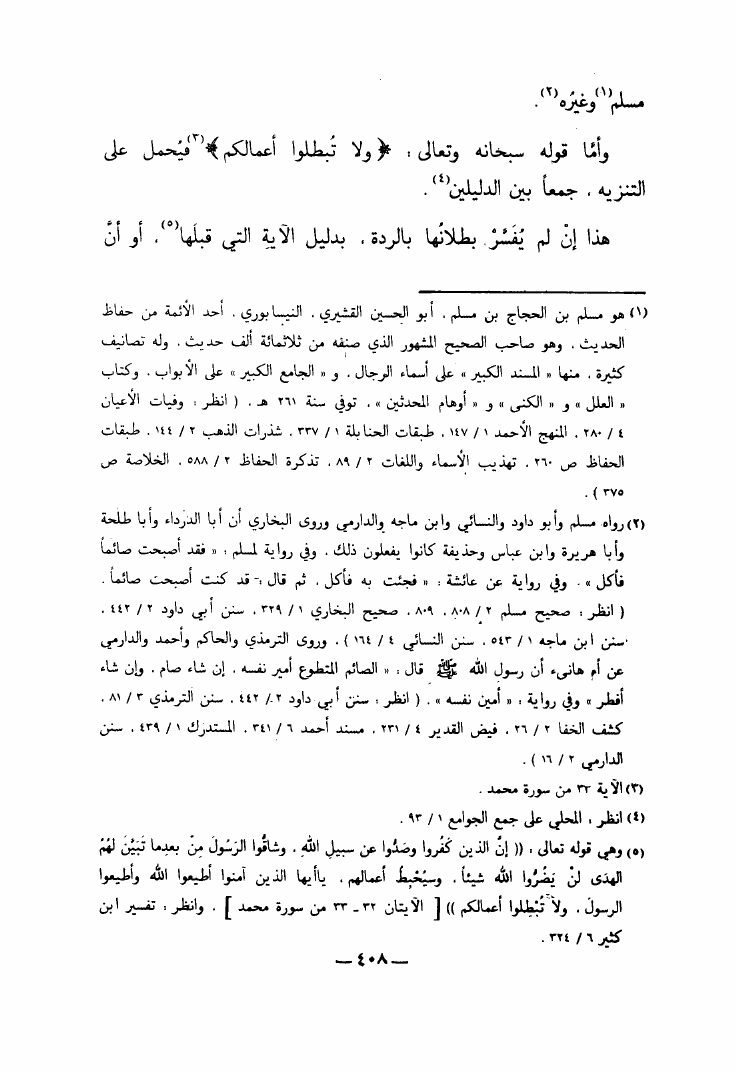 مسلم(١) وغيُره(٢).
وأمّا قوله سبحانه وتعالى : ﴿ ولا تُبطلوا أعمالكم ﴾(٣) فيُحمل على
التنزيه ، جمعاً بين الدليلين(٤) .
هذا إنْ لم يُفَسَّرْ بطلانُها بالردة ، بدليل الآية التي قبلَها(٥) ، أو أنَّ
(١) هو مسلم بن الحجاج بن مسلم ، أبو الحسين القشيري ، النيسابوري ، أحد الأئمة من حفاظ
الحديث ، وهو صاحب الصحيح المشهور الذي صنفه من ثلاثمائة ألف حديث ، وله تصانيف
كثيرة ، منها « المسند الكبير » على أسماء الرجال ، و « الجامع الكبير » على الأبواب ، وكتاب
« العلل » و « الكنى » و « أوهام المحدثين » ، توفي سنة ٢٦١ هـ . ( انظر : وفيات الأعيان
٤ / ٢٨٠ ، المنهج الأحمد ١ / ١٤٧ ، طبقات الحنابلة ١ / ٣٣٧ ، شذرات الذهب ٢ / ١٤٤ ، طبقات
الحفاظ ص ٢٦٠ ، تهذيب الأسماء واللغات ٢ / ٨٩ ، تذكرة الحفاظ ٢ / ٥٨٨ ، الخلاصة ص
٣٧٥ ) .
(٢) رواه مسلم وأبو داود والنسائي وابن ماجه والدارمي وروى البخاري أن أبا الدرداء وأبا طلحة
وأبا هريرة وابن عباس وحذيفة كانوا يفعلون ذلك . وفي رواية لمسلم : « فقد أصبحت صائماً
فأكل » . وفي رواية عن عائشة : « فجئت به فأكل ، ثم قال :- قد كنت أصبحت صائماً .
( انظر : صحيح مسلم ٢ / ٨٠٨ ، ٨٠٩ ، صحيح البخاري ١ / ٣٢٩ ، سنن أبي داود ٢ / ٤٤٢ ،
سنن ابن ماجه ١ / ٥٤٣ ، سنن النسائي ٤ / ١٦٤ ) . وروى الترمذي والحاكم وأحمد والدارمي
عن أم هانىء أن رسول الله ﷺ قال : « الصائم المتطوع أمير نفسه ، إن شاء صام ، وإن شاء
أفطر » وفي رواية : « أمين نفسه » . ( انظر : سنن أبي داود ٢ / ٤٤٢ ، سنن الترمذي ٣ / ٨١ ،
كشف الخفا ٢ / ٢٦ ، فيض القدير ٤ / ٢٣١ ، مسند أحمد ٦ / ٣٤١ ، المستدرك ١ / ٤٣٩ ، سنن
الدارمي ٢ / ١٦ ) .
(٣) الآية ٣٣ من سورة محمد .
(٤) انظر : المحلي على جمع الجوامع ١ / ٩٣ .
(٥) وهي قوله تعالى : (( إنَّ الذين كَفُروا وصَدُّوا عن سبيلِ اللهِ ، وشاقُّوا الرَسُولَ مِنْ بعدِما تَبَيَّنَ لَهُمْ
الهدَى لنْ يَضُرُّوا الله شيئاً ، وسيُحْبِطُ أعمالهم . ياأيها الذين آمنوا أطيعوا الله وأطيعوا
الرسولَ ، ولا تُبْطِلوا أعمالكم )) [ الآيتان ٣٢ ـ ٣٣ من سورة محمد ] . وانظر : تفسير ابن
كثير ٦ / ٣٢٤ .
— ٤٠٨ —